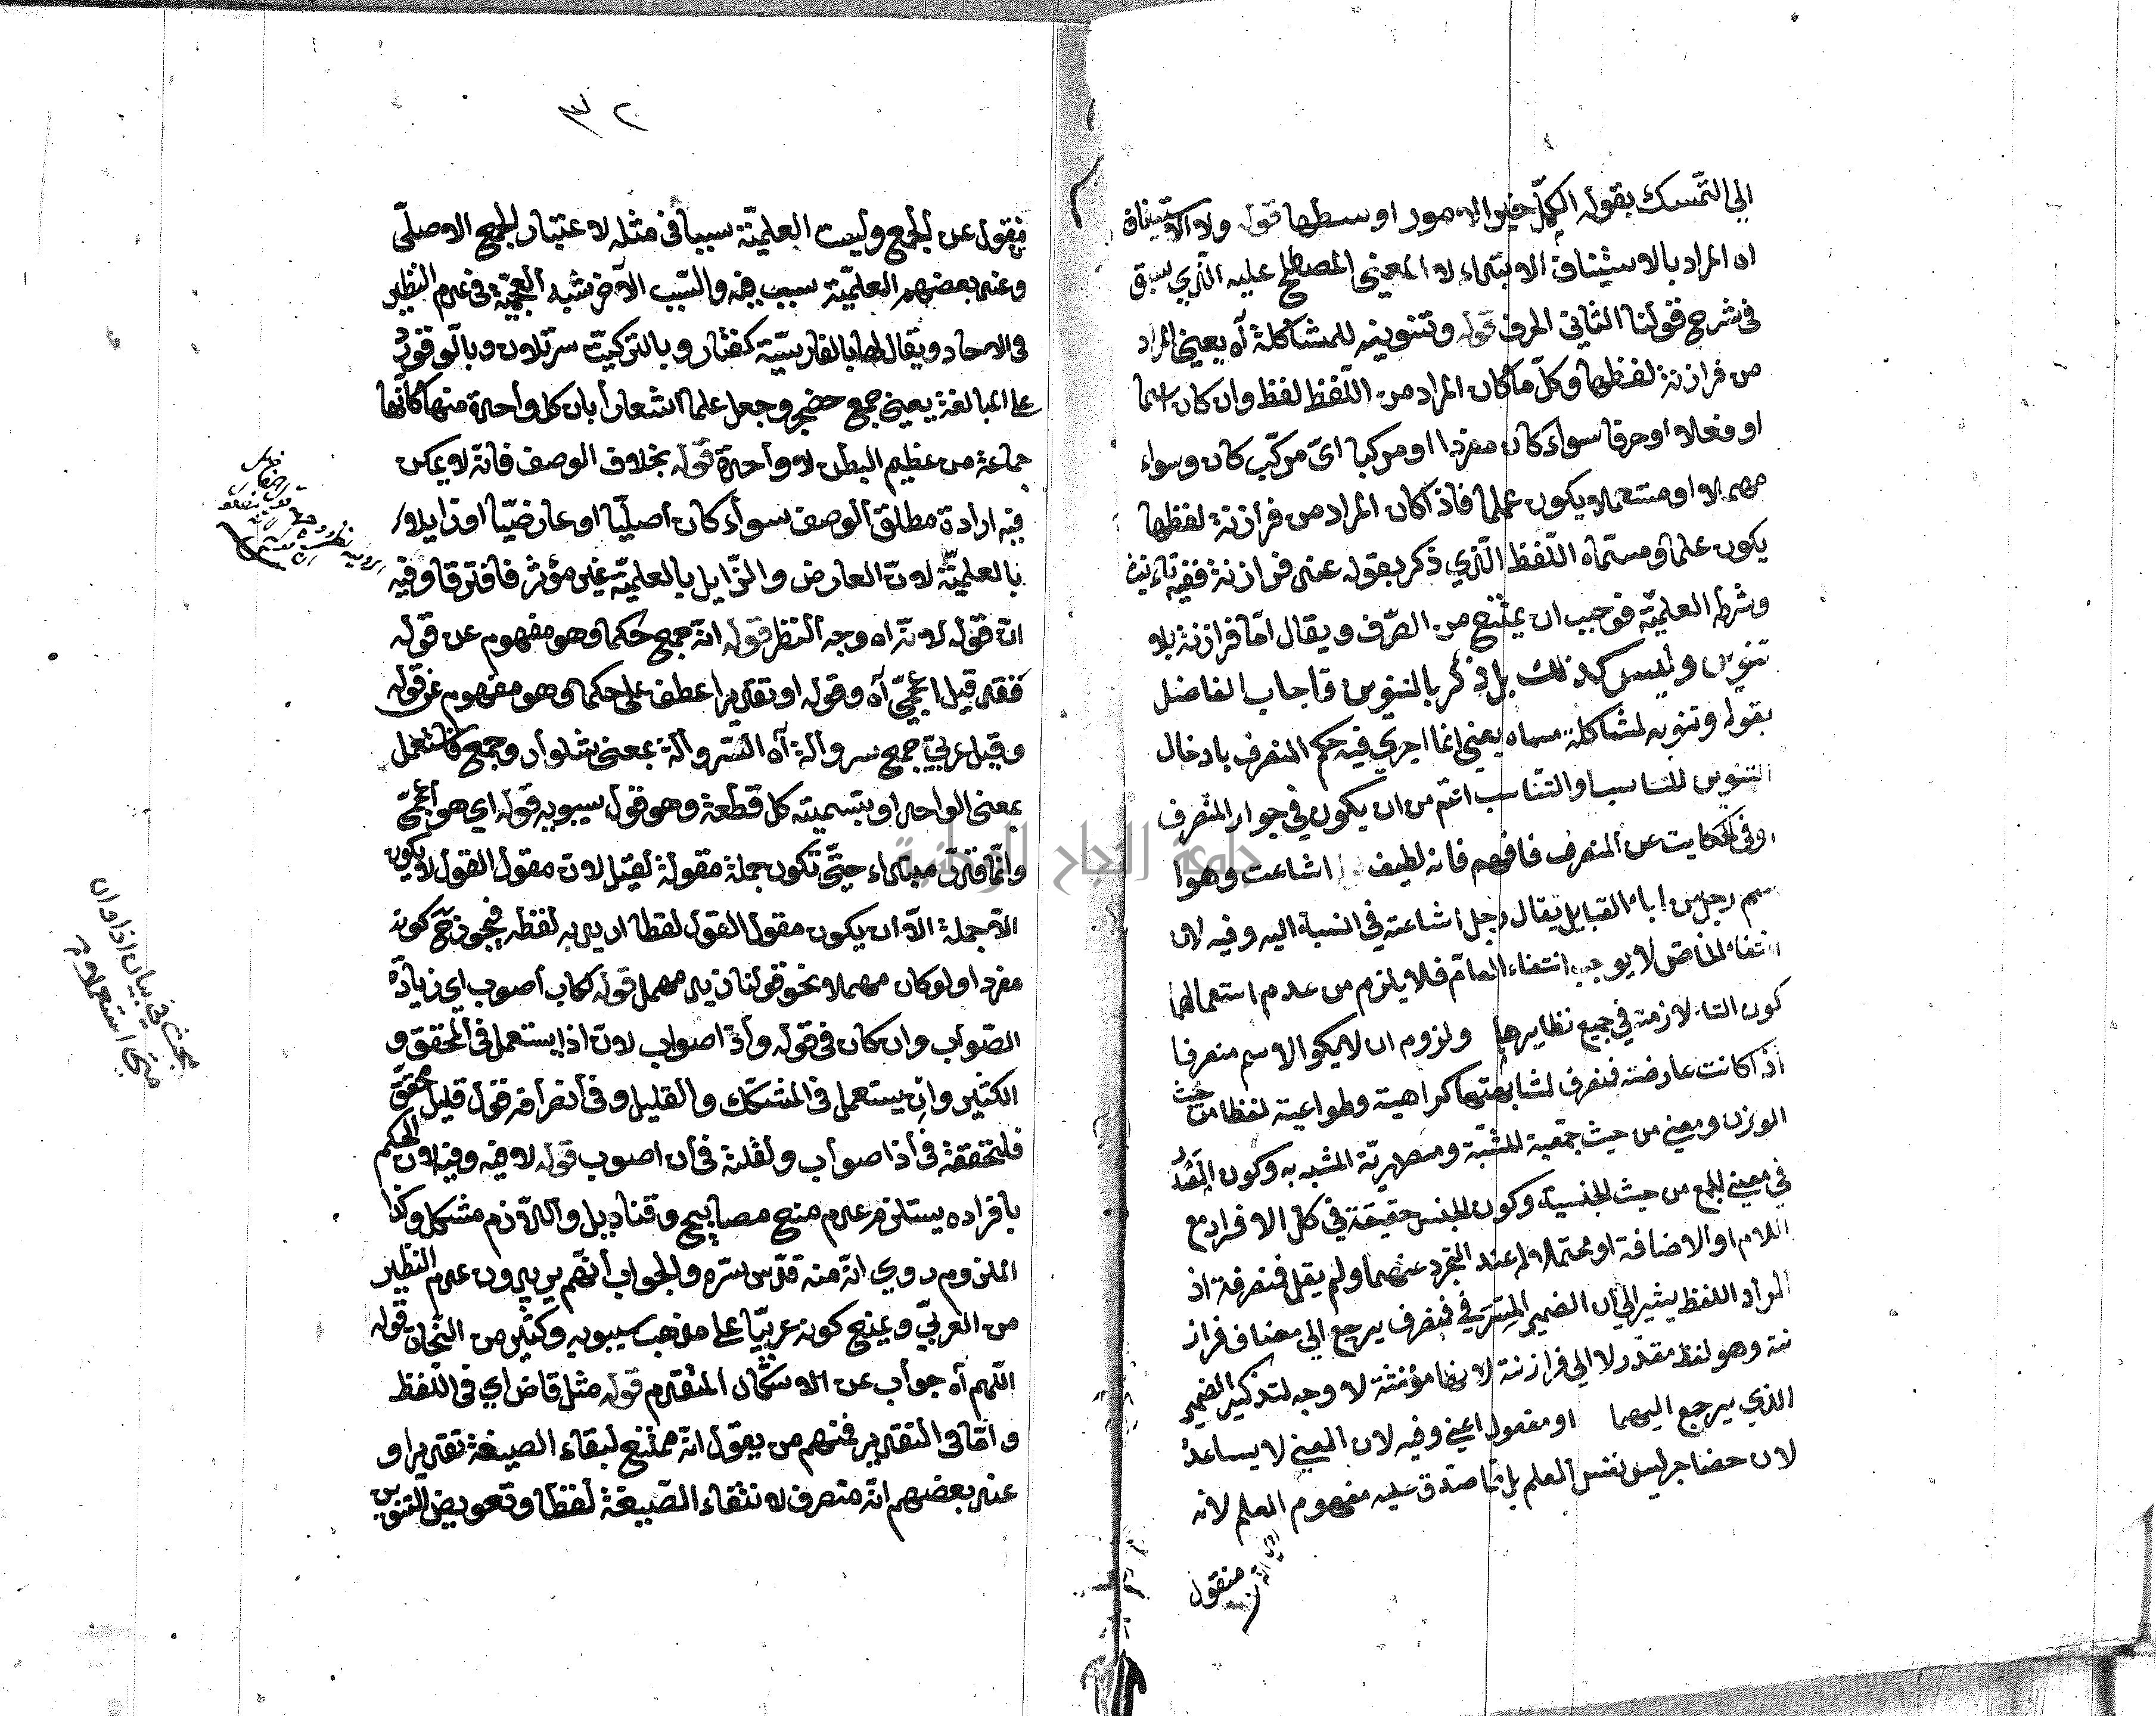 الي التمسك بقوله الكل خير الامور اوسطها قوله ولا الاستيناف
ان المراد بالاستيناف الابتداء لا المعنى المصطلح عليه الذي سبق
في شرح قولنا الثاني الحرف قوله وتنوينه للمشاكلة آه يعني المراد
من فرازنة لفظها وكل ما كان المراد من اللفظ لفظ وان كان اسما
او فعلا او حرفا سواء كان مفردا او مركبا اي مركب كان وسواء
مهملا او مستعملا يكون علما فاذا كان المراد من فرازنة لفظها
يكون علما ومسماه اللفظ الذي ذكر بقوله عند فرازنة ففيه تأنيث
وشرط العلمية فوجب ان يمتنع من الصرف ويقال اما فرازنة بلا
تنوين وليس كذلك بل ذكر بالتنوين فاجاب الفاضل
بقوله وتنوينه لمشاكلة مسماه يعني انما اجري فيه حكم المنصرف بادخال
التنوين للتناسب والتناسب اعم من ان يكون في جوار المنصرف
او في الحكايت عن المنصرف فافهم فانه لطيف اشاعت وهو ا
سم رجل من اباء القبايل يقال رجل اشاعتة في النسبة اليه وفيه لان
انتفاء الخاص لا يوجب انتفاء العام فلا يلزم من عدم استعمالها
كون التاء لازمة في جميع نظايرها ولزوم ان لا يكو الاسم منصرفا
اذا كانت عارضة فنصرف لمشابهتها كراهية وطواعية لفظا من حيث
الوزن ومعنى من حيث جمعية المشبه ومصدرية المشبه به وكون المصدر
في معنى الجمع من حيث الجنسية وكون الجنس حقيقة في كل الافراد مع
اللام او الاضافة او محتملا له عند التجرد عنهما ولم يقل فنصرفة اذ
المراد اللفظ يشير الي ان الضمير المستتر في فنصرف يرجع الي مضاف فراز
نة وهو لفظ مقدر لا الي فرازنة لانها مؤنثة لا وجه لتذكير الضمير
الذي يرجع اليهما او مفعول اعني وفيه لان المعني لا يساعده
لان حضاجر ليس نفس العلم بل ما صدق عليه مفهوم العلم لانه
منقول
٣٢
منقول عن الجمع وليست العلمية سببا في مثله لاعتبار الجمع الاصلي
وعند بعضهم العلمية سبب فيه والسبب الآخر شبه العجمة في عدم النظير
في الاحاد ويقال لها بالفارسية كفتار وبالتركيت سرتلان وبالو قود
علي المبالغة يعني جمع حضجر وجعل علما اشعارا بان كل واحدة منها كانها
جماعة من عظيم البطن لا واحدة قوله بخلاف الوصف فانه لا يمكن
فيه ارادة مطلق الوصف سواء كان اصليا او عارضيا او زايلا
بالعلمية لان العارض والزايل بالعلمية غير مؤثر فافترقا وفيه
ان قوله لانه اه وجه النظر قوله انه جمع حكما وهو مفهوم عن قوله
فقد قيل اعجمي آه وقوله او تقديرا عطف على حكما وهو مفهوم عن قوله
وقيل عربي جمع سروالة آه السروالة بمعنى شلوار وجمع فاستعمل
بمعنى الواحد او بتسمية كل قطعة وهو قول سيبويه قوله اي هو اعجمي
وانما قدر مبتداء حتى تكون جملة مقولة لقيل لان مقول القول لا يكون
الا جملة الا ان يكون مقول القول لفظا اريد به لفظه فيجوز ح كونه
مفردا ولو كان مهملا نحو قولنا زيد مهمل قوله لكان اصوب اي زيادة
الصواب وان كان في قوله واذا صواب لان اذا يستعمل في المحقق و
الكثير وان يستعمل في المشكك والقليل وفي انصرافه قول قليل محقق
فلتحققه في اذا صواب ولقلته في ان اصوب قوله لا فيه وفيه لان الحكم
بافراده يستلزم عدم منع مصابيح وقناديل واللازم مشكل وكذا
الملزوم روي انه منه قدس سره والجواب انهم يريدون عدم النظير
من العربي ويمنع كونه عربيا على مذهب سيبويه وكثير من النحات قوله
اللهم آه جواب عن الاشكال المتقدم قوله مثل قاض اي في اللفظ
واما في التقدير فمنهم من يقول انه ممتنع لبقاء الصيغة تقديرا و
عند بعضهم انه منصرف لانتفاء الصيغة لفظا وتعويض التنوين
مبحث في بيان اذا وان
متى استعملا
جامعة النجاح الوطنية